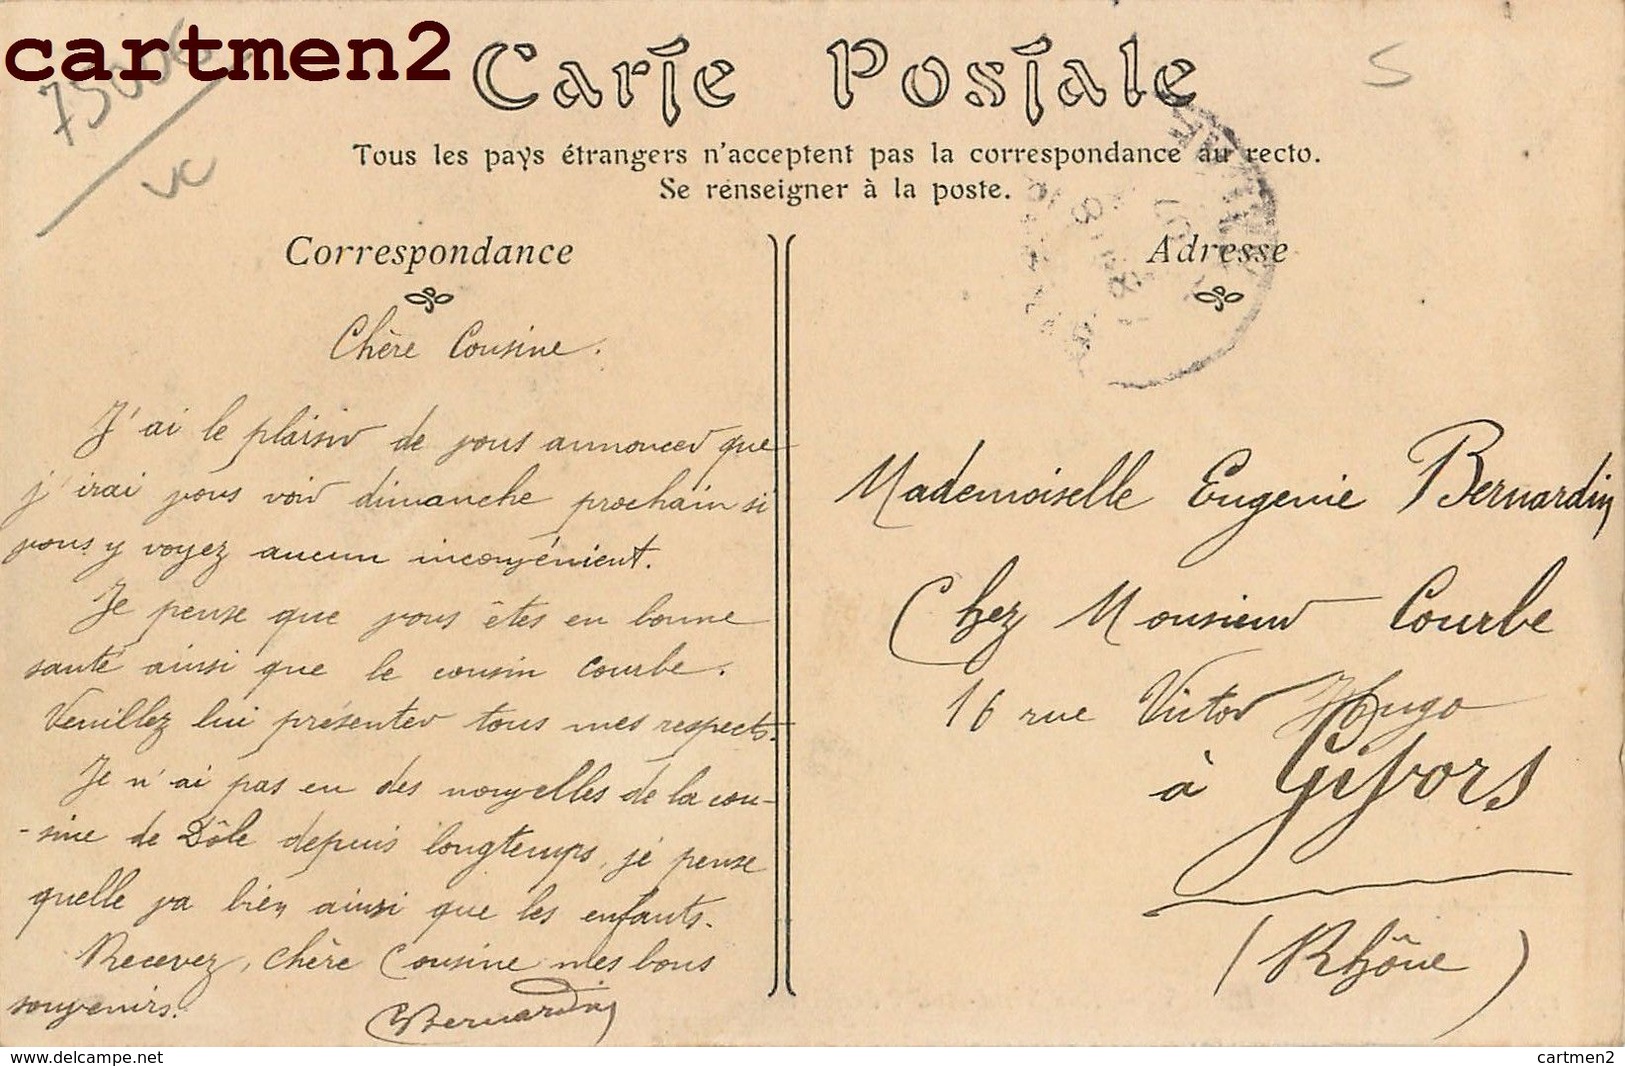 cartmen2
75006
VC
Carte Postale
S
Tous les pays étrangers n'acceptent pas la correspondance au recto.
Se renseigner à la poste.
Correspondance
Chère Cousine.
J'ai le plaisir de vous annoncer que
j'irai vous voir dimanche prochain si
vous y voyez aucun inconvénient.
Je pense que vous êtes en bonne
santé ainsi que le cousin Courbe.
Veuillez lui présenter tous mes respects.
Je n'ai pas eu des nouvelles de la cou-
-sine de Dôle depuis longtemps, je pense
quelle va bien ainsi que les enfants.
Recevez, chère Cousine mes bons
souvenirs.
CBernardin
Adresse
Mademoiselle Eugenie Bernardin
Chez Monsieur Courbe
16 rue Victor Hugo
à Givors
(Rhône)
delcampe.net
cartmen2